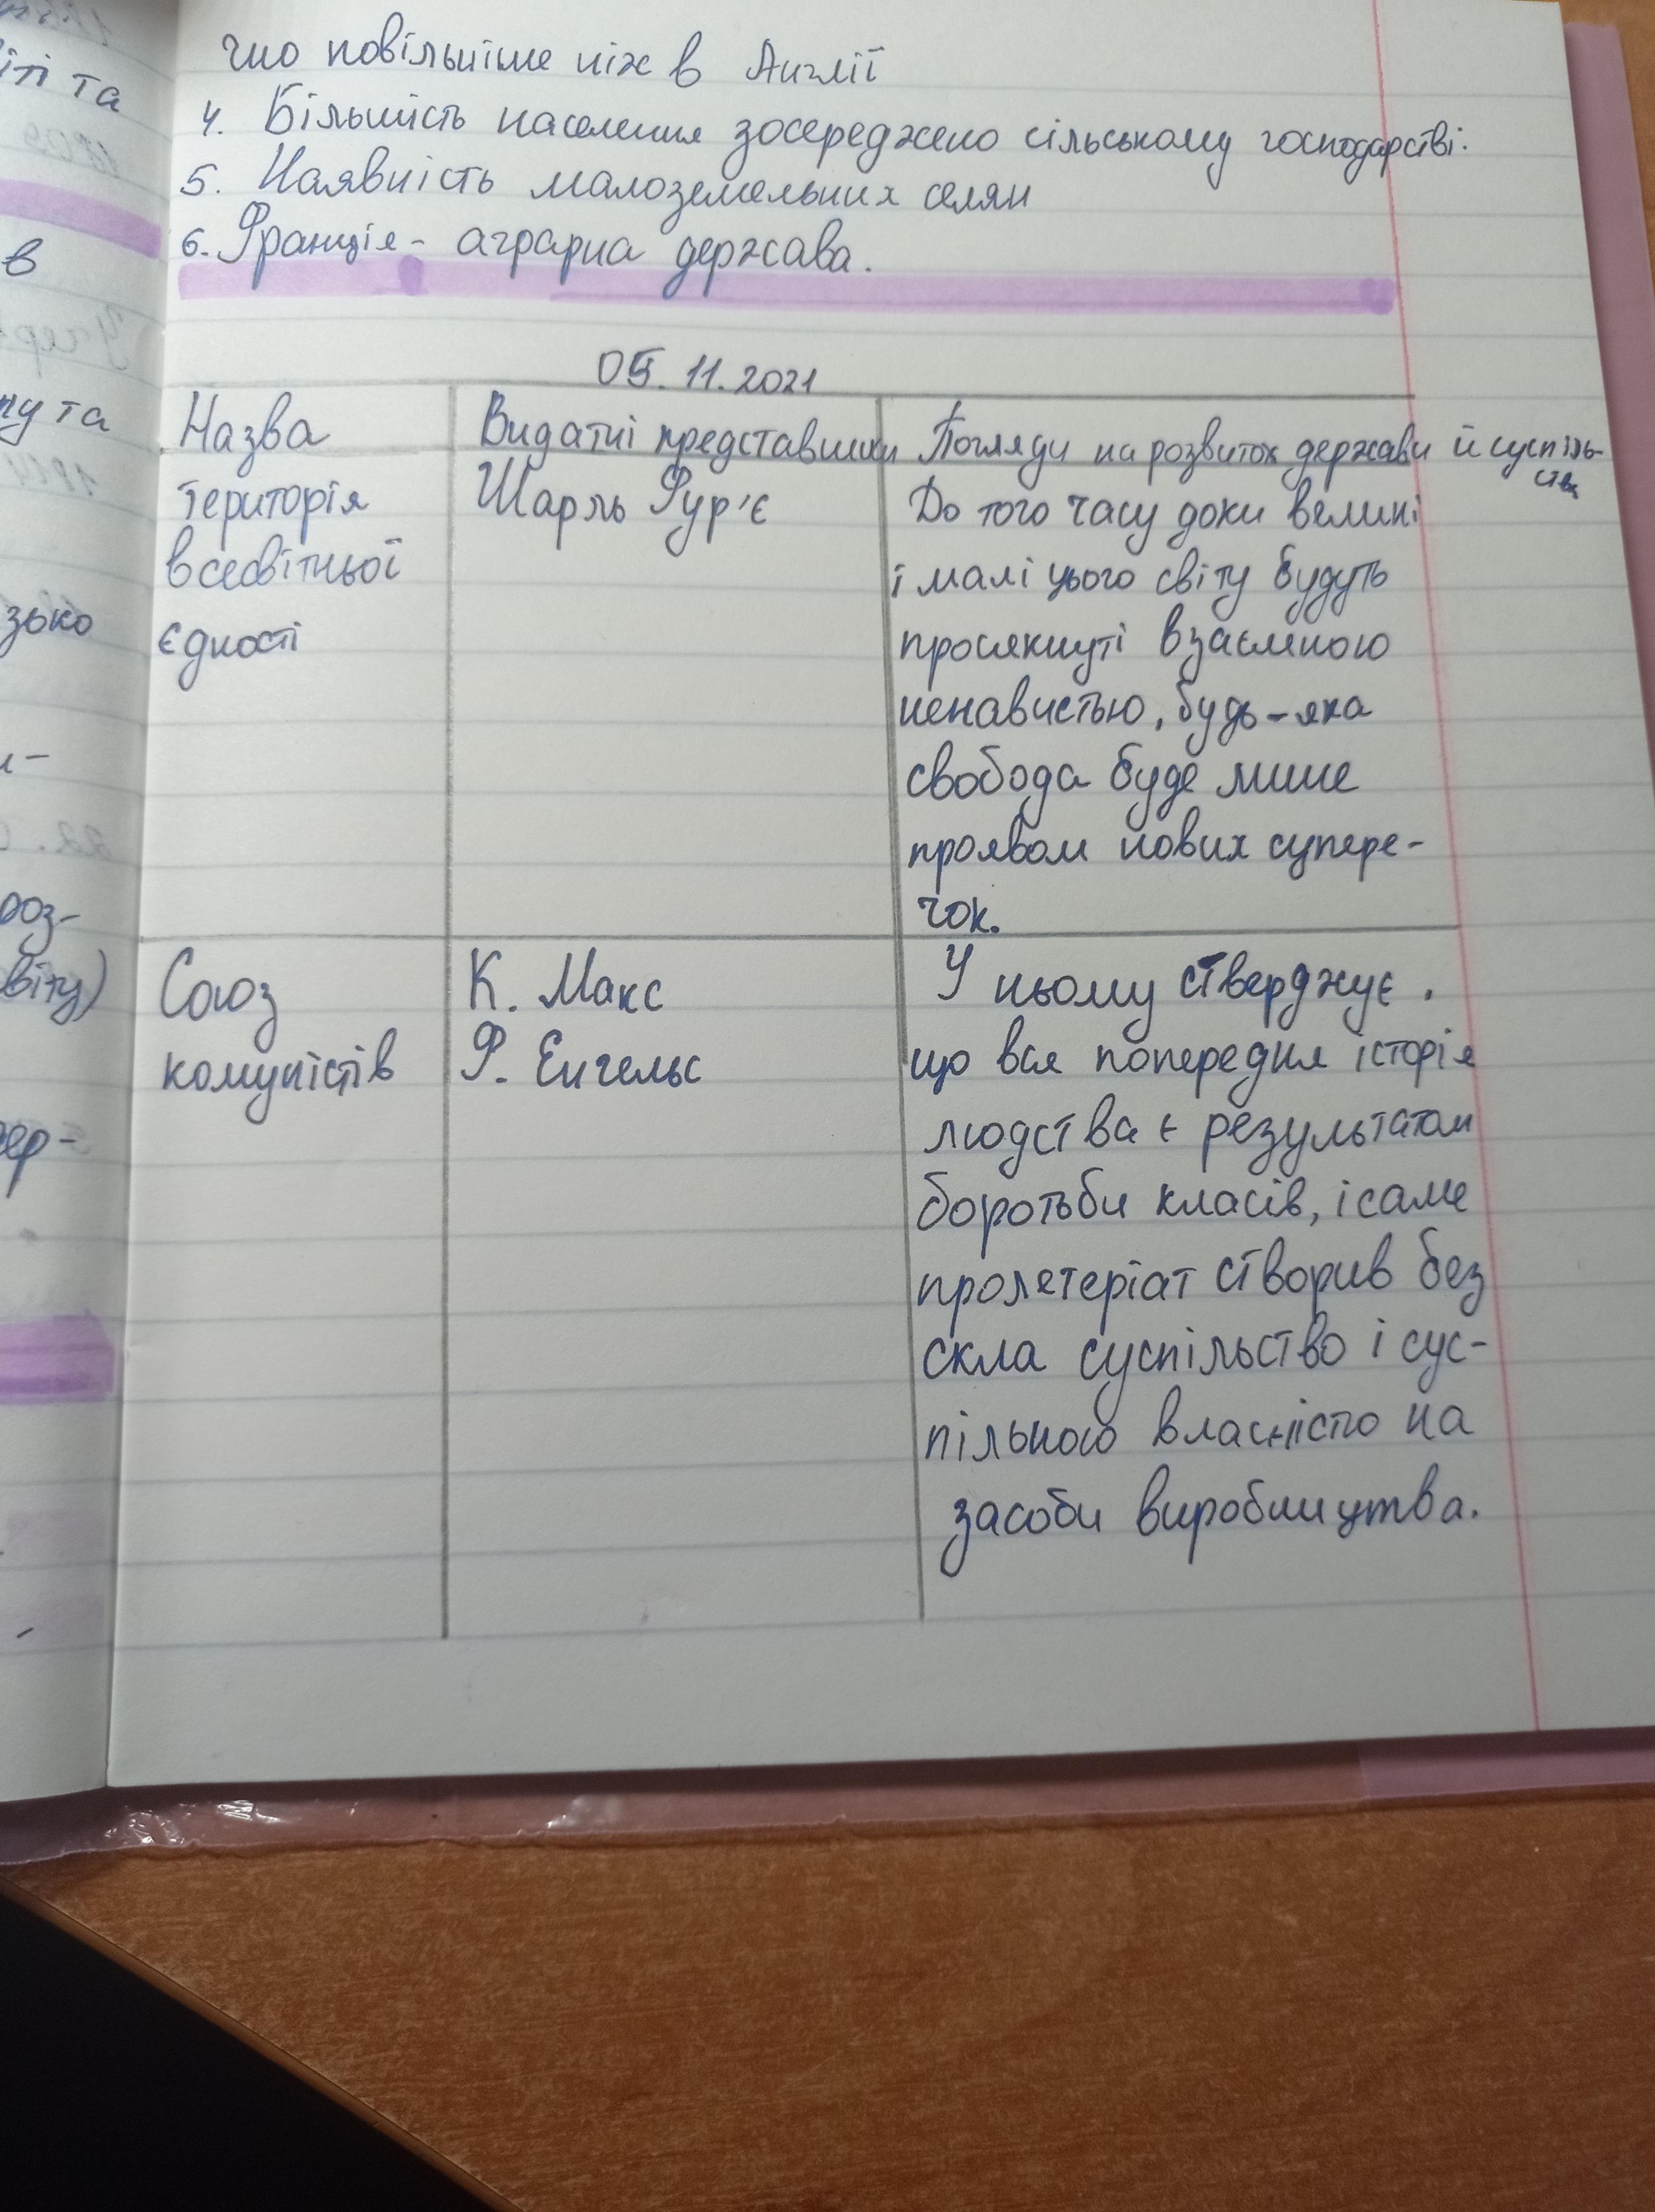 чно повільніше ніж в Англії
4. Більшість населення зосереджено сільському господарстві.
5. Наявність малоземельних селян
6. Франція - аграрна держава.
05.11.2021
Назва
Видатні представники
Погляди на розвиток держави й суспіль-
ства
територія
всесвітньої
єдності
Шарль Фур'є
До того часу доки великі
і малі цього світу будуть
просякнуті взаємною
ненавистью, будь-яка
свобода буде лише
проявом нових супере-
чок.
Союз
комуністів
К. Макс
Ф. Енгельс
У ньому стверджує,
що вся попередня історія
людства є результатом
боротьби класів, і саме
пролетеріат створив без
скла суспільство і сус-
пільною власністю на
засоби виробництва.
іті та
в
ту та
зько
роз-
віту)